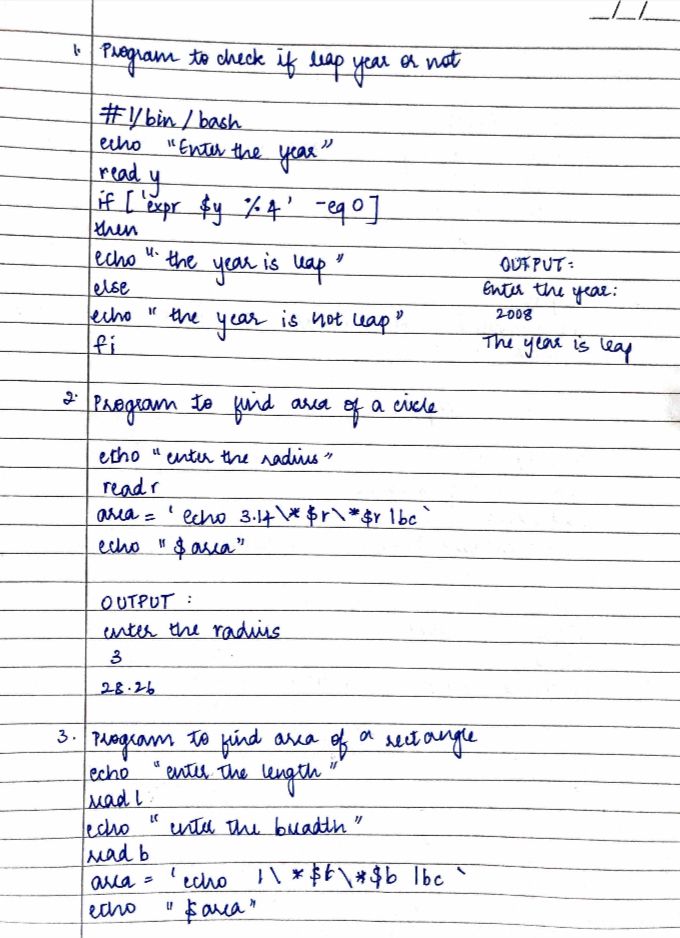 _/_/_
1. Program to check if leap year or not
#!/bin/bash
echo "Enter the year"
read y
if ['expr $y %4' -eq 0]
then
echo " the year is leap "
else
echo " the year is not leap"
fi
OUTPUT:
Enter the year:
2008
The year is leap
2. Program to find area of a circle
echo "enter the radius"
read r
area = 'echo 3.14\*$r\*$r |bc`
echo "$area"
OUTPUT :
enter the radius
3
28.26
3. Program to find area of a rectangle
echo "enter the length"
read l
echo "enter the breadth"
read b
area = 'echo 1\*$l\*$b |bc `
echo "$area"